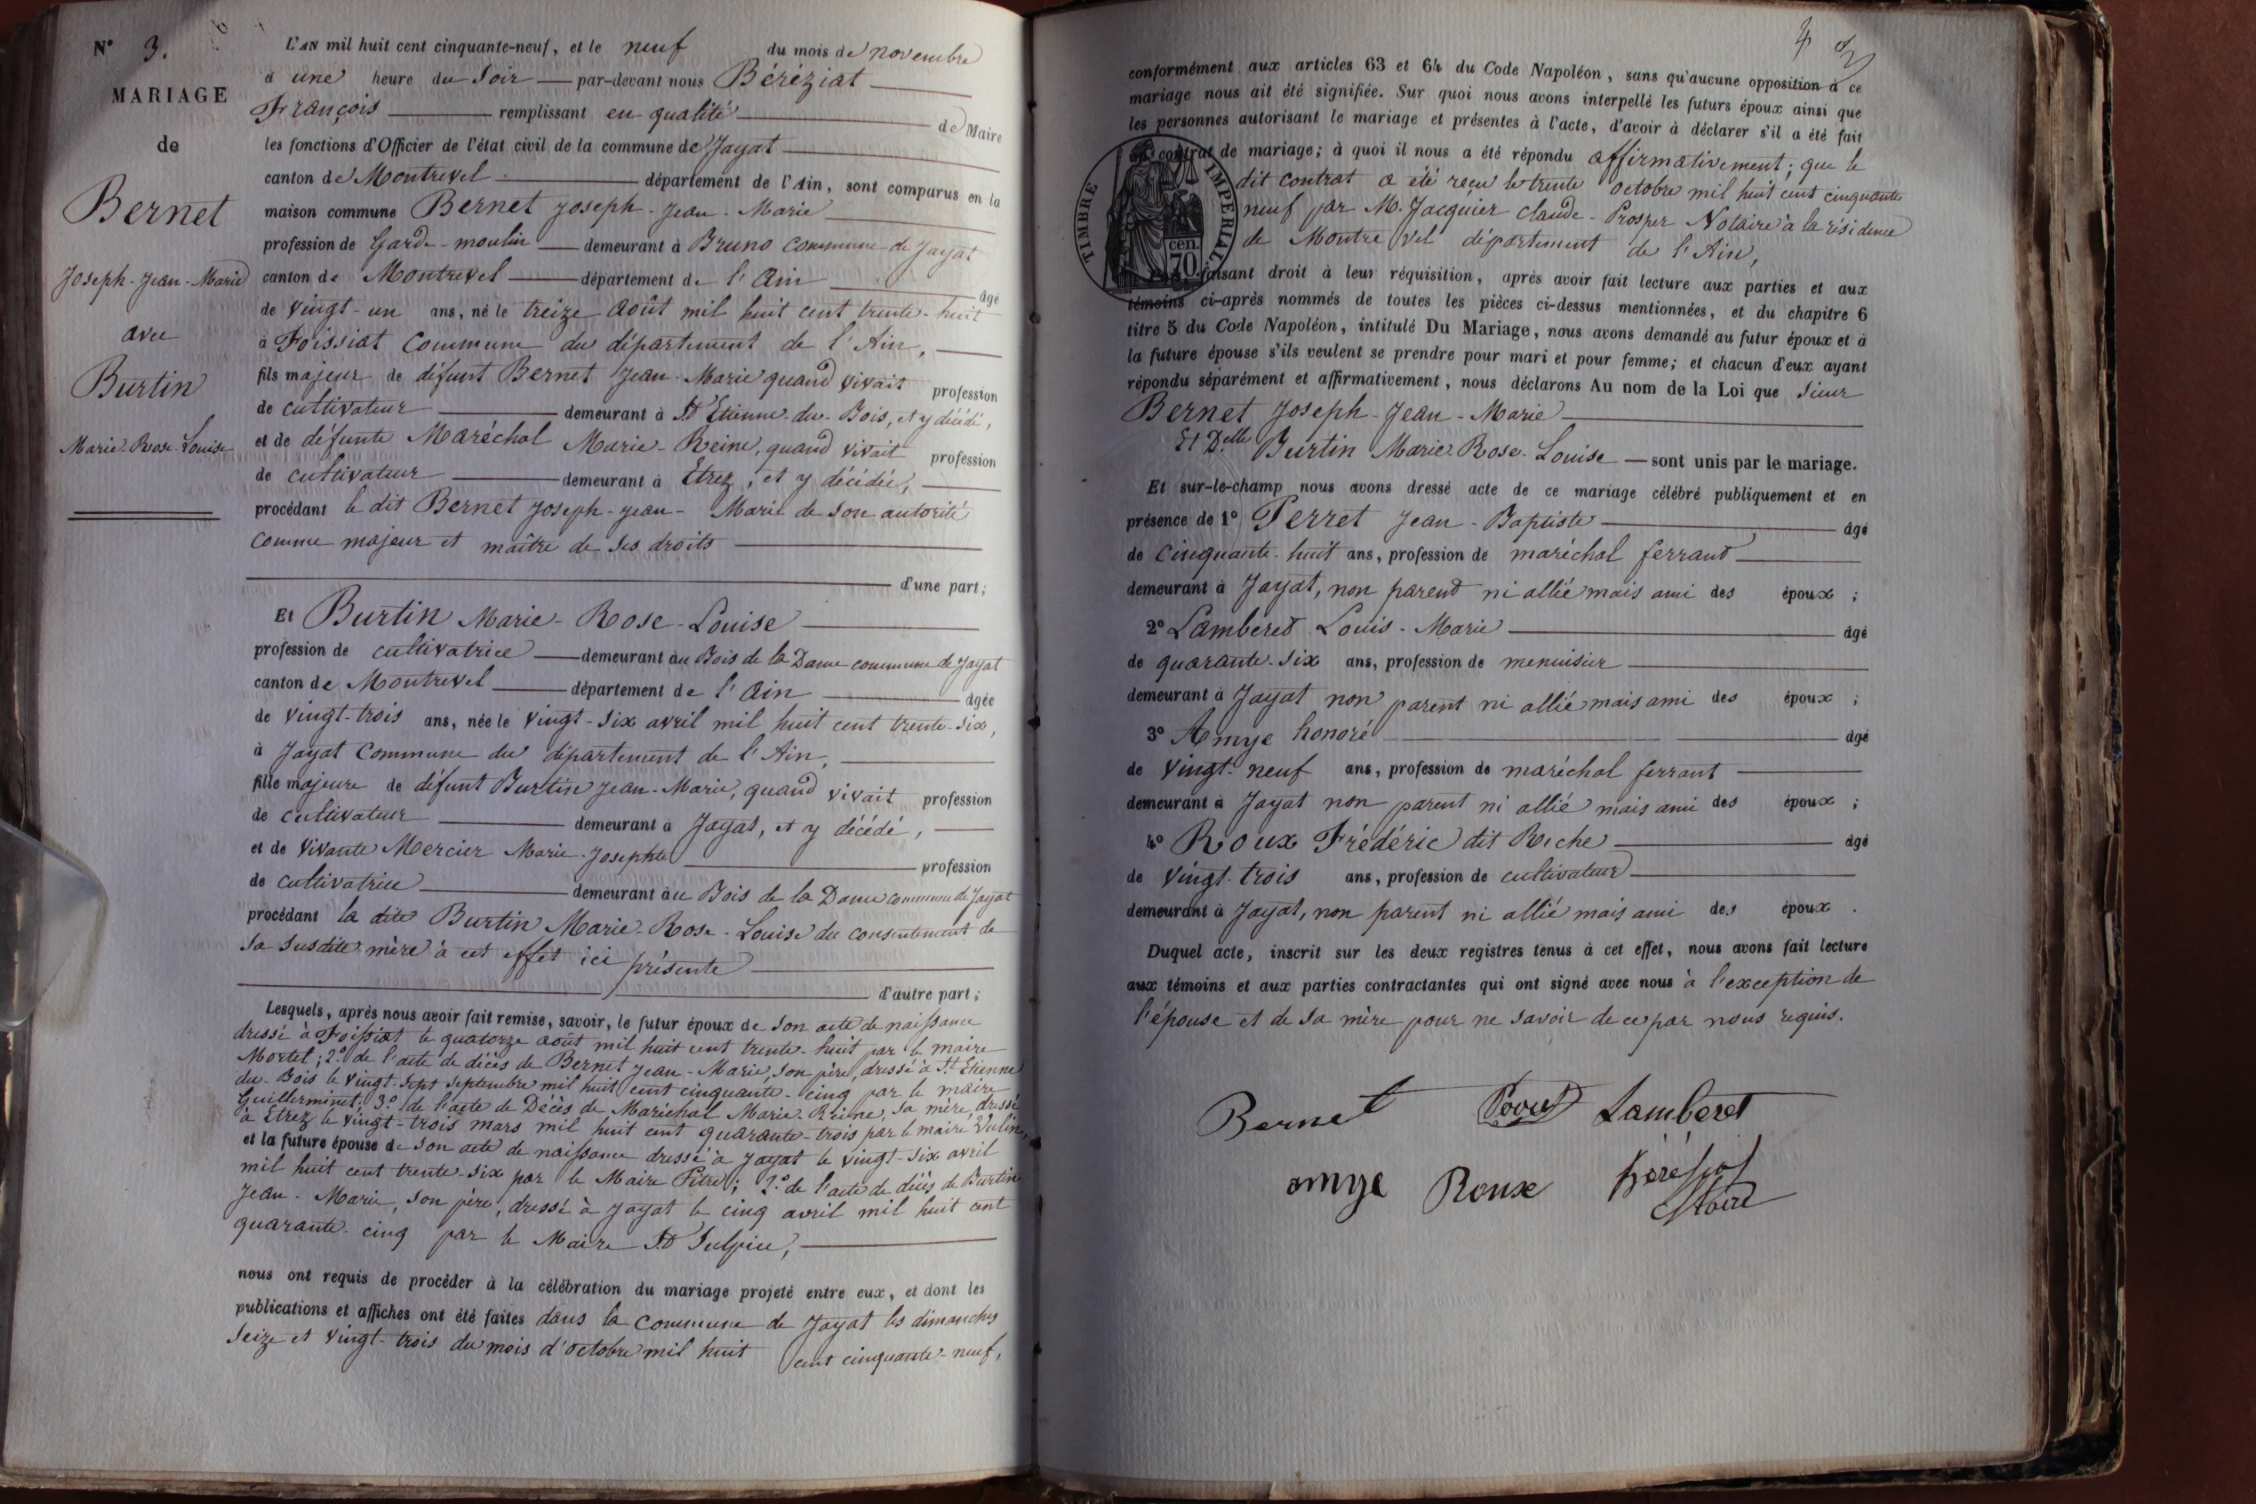 N° 3.
MARIAGE
de
Bernet
Joseph-Jean-Marie
avec
Burtin
Marie-Rose-Louise
L'AN mil huit cent cinquante-neuf, et le neuf du mois de novembre
à une heure du Soir par-devant nous Béréziat
François remplissant en qualité de Maire
les fonctions d'Officier de l'état civil de la commune de Jayat
canton de Montrevel département de l'Ain, sont comparus en la
maison commune Bernet Joseph-Jean-Marie
profession de Garde-moulin demeurant à Bruno Commune de Jayat
canton de Montrevel département de l'Ain âgé
de vingt-un ans, né le treize août mil huit cent trente-huit
à Foissiat Commune du département de l'Ain,
fils majeur de défunt Bernet Jean-Marie quand vivait profession
de cultivateur demeurant à St Etienne-du-Bois, et y décédé,
et de défunte Maréchal Marie-Reine, quand vivait profession
de cultivateur demeurant à Etrez, et y décédée,
procédant le dit Bernet Joseph-Jean-Marie de son autorité
comme majeur et maître de ses droits
d'une part;
Et Burtin Marie-Rose-Louise
profession de cultivatrice demeurant au Bois de la Dame commune de Jayat
canton de Montrevel département de l'Ain âgée
de vingt-trois ans, née le vingt-six avril mil huit cent trente-six,
à Jayat Commune du département de l'Ain,
fille majeure de défunt Burtin Jean-Marie, quand vivait profession
de cultivateur demeurant à Jayat, et y décédé,
et de vivante Mercier Marie-Josephte profession
de cultivatrice demeurant au Bois de la Dame commune de Jayat
procédant la dite Burtin Marie-Rose-Louise du consentement de
sa susdite mère à cet effet ici présente
d'autre part;
Lesquels, après nous avoir fait remise, savoir, le futur époux de son acte de naissance
dressé à Foissiat le quatorze août mil huit cent trente-huit par le maire
Mortel; 2° de l'acte de décès de Bernet Jean-Marie, son père, dressé à St Etienne
du-Bois le vingt-sept septembre mil huit cent cinquante-cinq par le maire
Guillerminet; 3° de l'acte de Décès de Maréchal Marie-Reine, sa mère dressé
à Etrez le vingt-trois mars mil huit cent quarante-trois par le maire Vulin,
et la future épouse de son acte de naissance dressé à Jayat le vingt-six avril
mil huit cent trente-six par le Maire Pitre; 2° de l'acte de décès de Burtin
Jean-Marie, son père, dressé à Jayat le cinq avril mil huit cent
quarante-cinq par le Maire St Sulpice,
nous ont requis de procéder à la célébration du mariage projeté entre eux, et dont les
publications et affiches ont été faites dans la Commune de Jayat les dimanches
seize et vingt-trois du mois d'octobre mil huit cent cinquante-neuf,
conformément aux articles 63 et 64 du Code Napoléon, sans qu'aucune opposition à ce
mariage nous ait été signifiée. Sur quoi nous avons interpellé les futurs époux ainsi que
les personnes autorisant le mariage et présentes à l'acte, d'avoir à déclarer s'il a été fait
contrat de mariage; à quoi il nous a été répondu affirmativement; que le
dit contrat a été reçu le trente octobre mil huit cent cinquante
neuf par M. Jacquier Claude-Prosper Notaire à la résidence
de Montrevel département de l'Ain,
TIMBRE IMPERIAL
cen. 70
faisant droit à leur réquisition, après avoir fait lecture aux parties et aux
témoins ci-après nommés de toutes les pièces ci-dessus mentionnées, et du chapitre 6
titre 5 du Code Napoléon, intitulé Du Mariage, nous avons demandé au futur époux et à
la future épouse s'ils veulent se prendre pour mari et pour femme; et chacun d'eux ayant
répondu séparément et affirmativement, nous déclarons Au nom de la Loi que Sieur
Bernet Joseph-Jean-Marie
Et Delle Burtin Marie-Rose-Louise sont unis par le mariage.
Et sur-le-champ nous avons dressé acte de ce mariage célébré publiquement et en
présence de 1° Perret Jean-Baptiste âgé
de cinquante-huit ans, profession de maréchal ferrant
demeurant à Jayat, non parent ni allié mais ami des époux;
2° Lamberet Louis-Marie âgé
de quarante-six ans, profession de menuisier
demeurant à Jayat non parent ni allié mais ami des époux;
3° Amye honoré âgé
de vingt-neuf ans, profession de maréchal ferrant
demeurant à Jayat non parent ni allié mais ami des époux;
4° Roux Frédéric dit Riche âgé
de vingt-trois ans, profession de cultivateur
demeurant à Jayat, non parent ni allié mais ami des époux.
Duquel acte, inscrit sur les deux registres tenus à cet effet, nous avons fait lecture
aux témoins et aux parties contractantes qui ont signé avec nous à l'exception de
l'épouse et de sa mère pour ne savoir de ce par nous requis.
Bernet Lamberet
amye Roux Béréziat